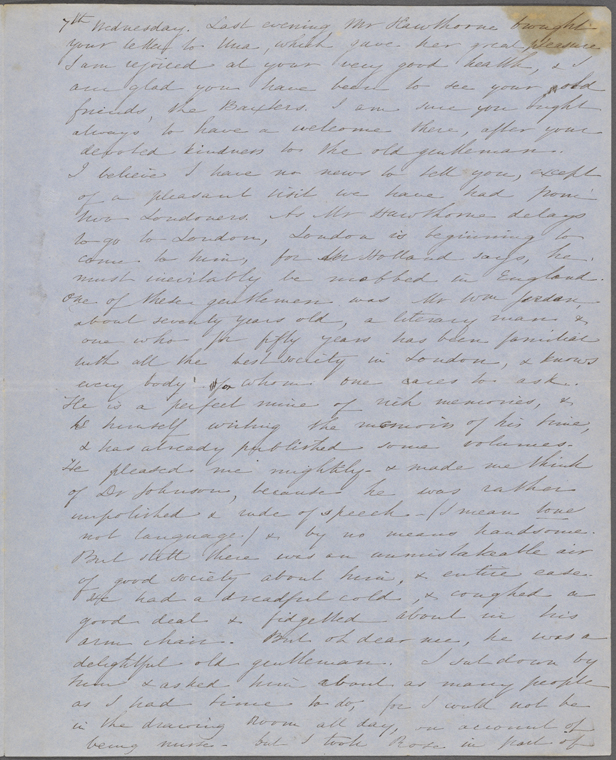 7th Wednesday. Last evening Mr Hawthorne brought
your letter to Una, which gave her great pleasure
I am rejoiced at your very good health, & I
am glad you have been to see your good
friends, the Baxters. I am sure you ought
always to have a welcome there, after your
devoted kindness to the old gentleman.
I believe I have no news to tell you, except
of a pleasant visit we have had from
two Londoners. As Mr Hawthorne delays
to go to London, London is beginning to
come to him, for Mr Holland says, he
must inevitably be mobbed in England.
One of these gentlemen was Mr Wm Jerdan,
about seventy years old, a literary man &
one who for fifty years has been familiar
with all the best society in London, & knows
every body! for whom one cares to ask.
He is a perfect mine of rich memories, &
is himself writing the memoirs of his time,
& has already published some volumes.
He pleased me mightily & made me think
of Dr Johnson, because he was rather
unpolished & rude of speech (I mean tone
not language.) & by no means handsome.
But still there was an unmistakeable air
of good society about him, & entire ease.
He had a dreadful cold, & coughed a
good deal & fidgetted about in his
arm chair. But oh dear me, he was a
delightful old gentleman. I sat down by
him & asked him about as many people
as I had time to do, for I could not be
in the drawing room all day, on account of
being nurse. But I took Rose in part of